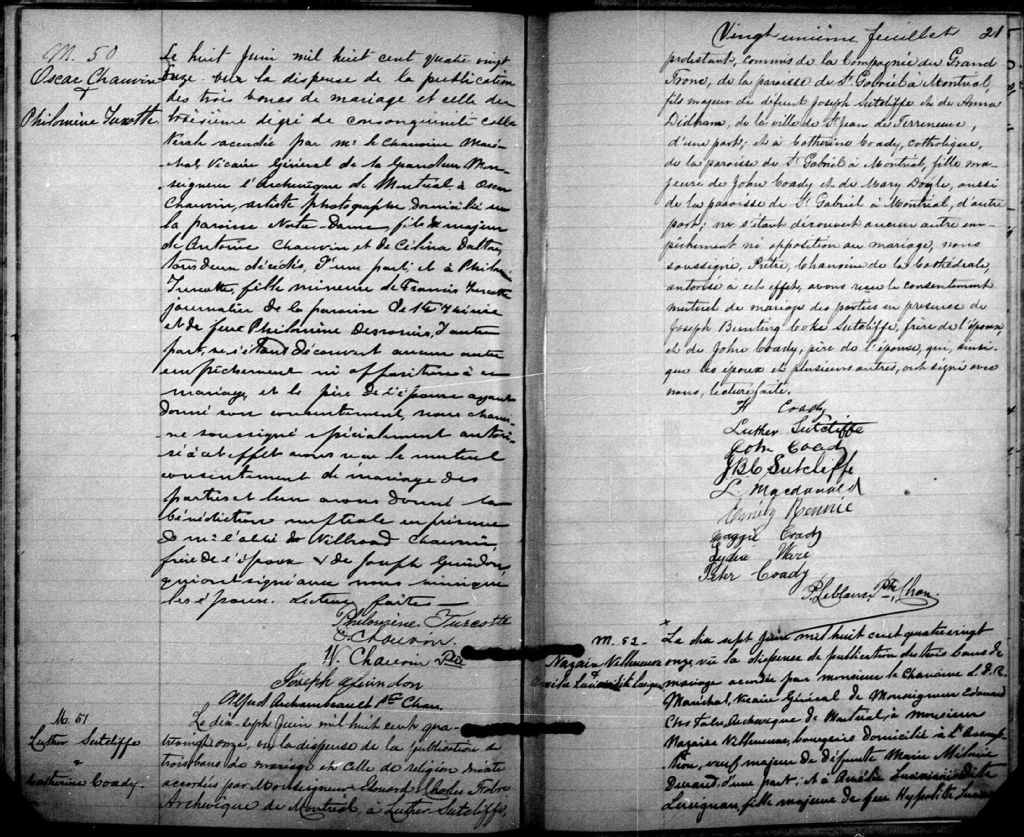 M. 50
Oscar Chauvin
&
Philomène Turcotte
Le huit Juin mil huit cent quatre vingt
onze. vu la dispense de la publication
des trois bancs de mariage et celle du
troisième degré de consanguinité colla
térale accordée par Mr le chanoine Maré-
chal, Vicaire Général de Sa Grandeur Mon-
seigneur l'Archevêque de Montréal à Oscar
Chauvin, artiste photographe domicilié en
la paroisse Notre-Dame, fils majeur
de Antoine Chauvin et de Célina
tous deux décédés, d'une part; et à Philomène
Turcotte, fille mineure de Francis Turcotte
journalier de la paroisse
et de feue Philomène Desrosiers, d'autre
part, ne s'étant découvert aucun autre
empêchement ni opposition à ce
mariage, et le père de l'épouse ayant
donné son consentement, nous chanoi-
ne soussigné spécialement autori-
sé à cet effet avons reçu le mutuel
consentement de mariage des
parties et leur avons donné la
bénédiction nuptiale en présence
de Mr l'abbé Chauvin,
frère de l'époux & de Joseph Guindon
qui ont signé avec nous ainsi que
les époux. Lecture faite
Philomène Turcotte
O Chauvin
W. Chauvin Ptre
Joseph Guindon
Alfred Archambeault ptre Chan.
M. 51
Luther Sutcliffe
&
Catherine Coady.
Le dix-sept Juin mil huit cent qua-
trevingt onze, vu la dispense de la publication de
trois bans de mariage et celle de religion mixte
accordées par Monseigneur Edouard Charles Fabre
Archevêque de Montréal, à Luther Sutcliffe,
Vingt unième feuillet 21
protestant, commis de la Compagnie du Grand
Tronc, de la paroisse de St Gabriel à Montréal,
fils majeur de défunt Joseph Sutcliffe et de Anna
Didham, de la ville de St Jean de Terreneuve,
d'une part; et à Catherine Coady, catholique,
de la paroisse de St Gabriel à Montréal, fille ma-
jeure de John Coady et de Mary Doyle, aussi
de la paroisse de St Gabriel à Montréal, d'autre
part; ne s'étant découvert aucun autre em-
pêchement ni opposition au mariage, nous
soussigné, Prêtre, Chanoine de la Cathédrale,
autorisé à cet effet, avons reçu le consentement
mutuel de mariage des parties en présence de
Joseph Bunting Coke Sutcliffe, frère de l'époux,
et de John Coady, père de l'épouse, qui, ainsi
que les époux et plusieurs autres, ont signé avec
nous, lecture faite.
K Coady
Luther Sutcliffe
John Coady
J.B.C Sutcliffe
L. Macdonald
Rennie
Maggie Coady
Lydia Ware
Peter Coady
P. Leblanc, Ptre, Chan.
M. 52
Nazaire Villeneuve
&
Amélie Lusignan
Le dix sept Juin mil huit cent quatre vingt
onze vu la dispense de publication des trois bans de
mariage accordée par monsieur le Chanoine L.D.A.
Maréchal, Vicaire Général de Monseigneur Edouard
Chs Fabre Archevêque de Montréal à monsieur
Nazaire Villeneuve, bourgeois domicilié à L'Assomp-
tion, veuf majeur de défunte Marie Mélanie
Durand, d'une part; et à Amélie dite
Lusignan, fille majeure de feu Hypolite